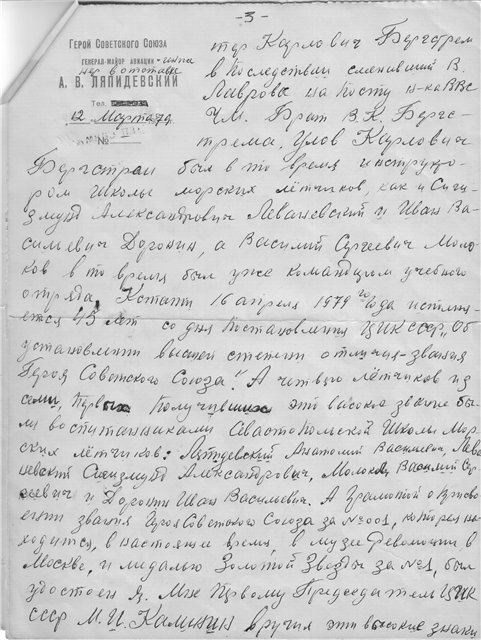 -3-
Герой Советского Союза
генерал-майор авиации - инже
нер в отставке
А. В. ЛЯПИДЕВСКИЙ
Тел.
12 Марта 79
№
тер Карлович Бергстрем
в последствии сменивший В.
Лаврова на посту н-ка ВВС
Ч.М. Брат В.К. Бергс-
трема, Улов Карлович
Бергстрем был в то время инструкто-
ром школы морских лётчиков, как и Сиги-
змунд Александрович Леваневский и Иван Ва-
сильевич Доронин, а Василий Сергеевич Моло-
ков в то время был уже командиром учебного
отряда. Кстати 16 апреля 1979 го года исполня-
ется 45 лет со дня Постановления ЦИК СССР „Об
установлении высшей степени отличия-звания
Героя Советского Союза". А четверо лётчиков из
семи, первых получивших это высокое звание бы-
ли воспитанниками Севастопольской Школы Мор-
ских лётчиков: Ляпидевский Анатолий Васильевич, Лева
невский Сигизмунд Александрович, Молоков Василий Сер
геевич и Доронин Иван Васильевич. А Грамотой о присво
ении звания Героя Советского Союза за №001, которая на-
ходится, в настоящее время, в музее Революции в
Москве, и медалью Золотой Звезды за №1, был
удостоен я. Мне Первому Председатель ЦИК
СССР М.И. Калинин вручил эти высокие знаки